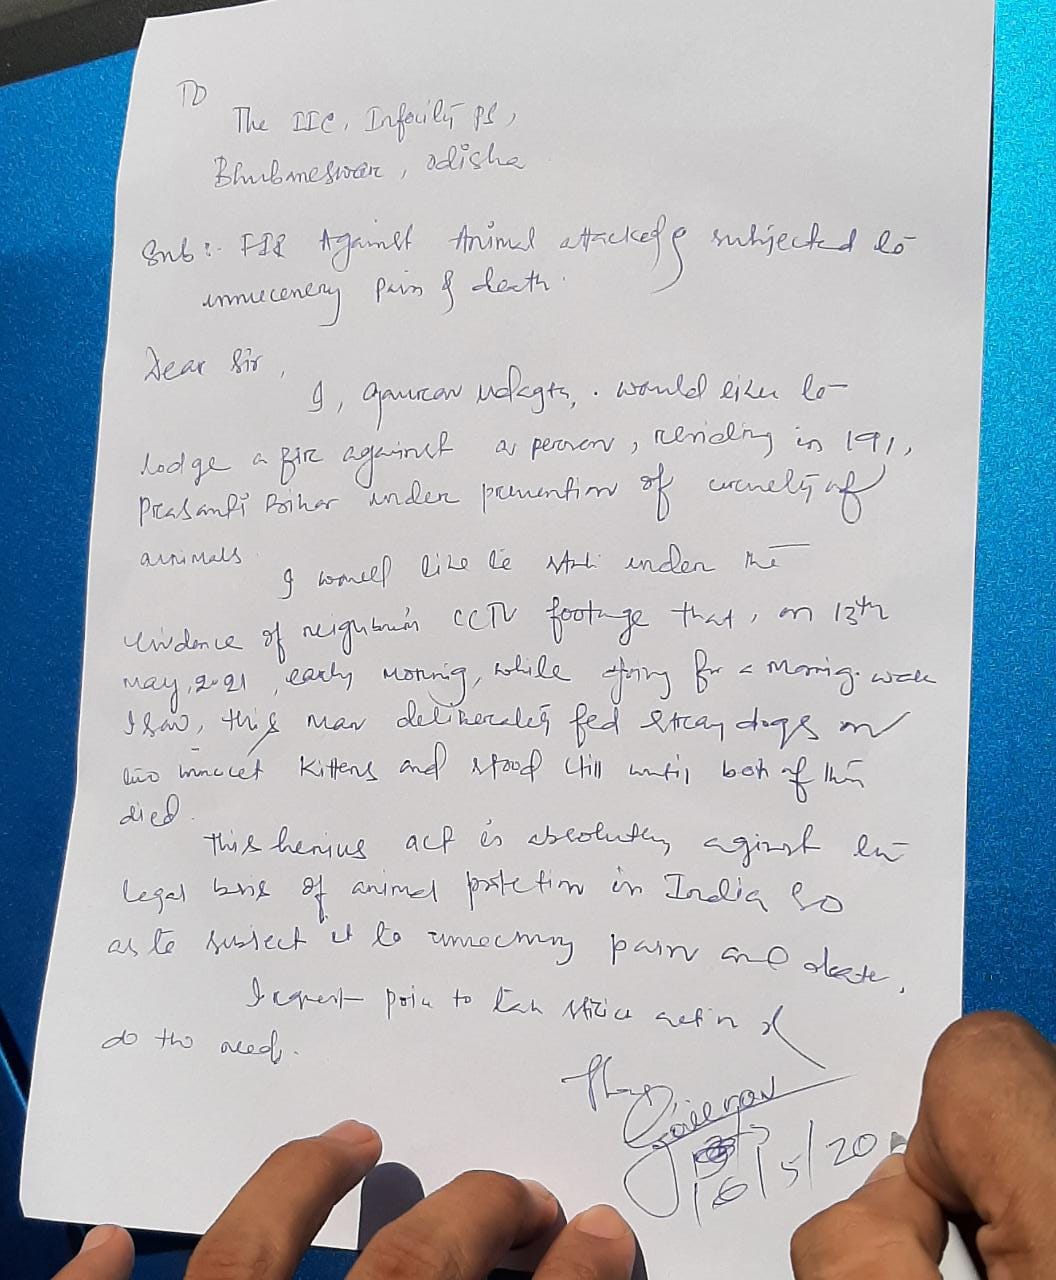 To
The IIC, Infocity PS,
Bhubmeswar, odisha
Sub :- FIR Against Animal attacked & subjected to
unnecenery pain & death.
Dear Sir,
I, gaurav, would like to
lodge a fir against a person, residing in 191,
Prasanti Bihar under prevention of cruelty of
animals
I would like to state under the
evidence of neighbour's CCTV footage that, on 13th
may, 2021, early morning, while going for a morning walk
I saw, this man deliberately fed stray dogs on
two innocet kittens and stood still until both of them
died.
This henius act is absolutely aginst the
legal basis of animal protection in India so
as to subject it to unnecessary pain and death.
I request police to take strict action &
do the need.
Gaurav
16/5/20